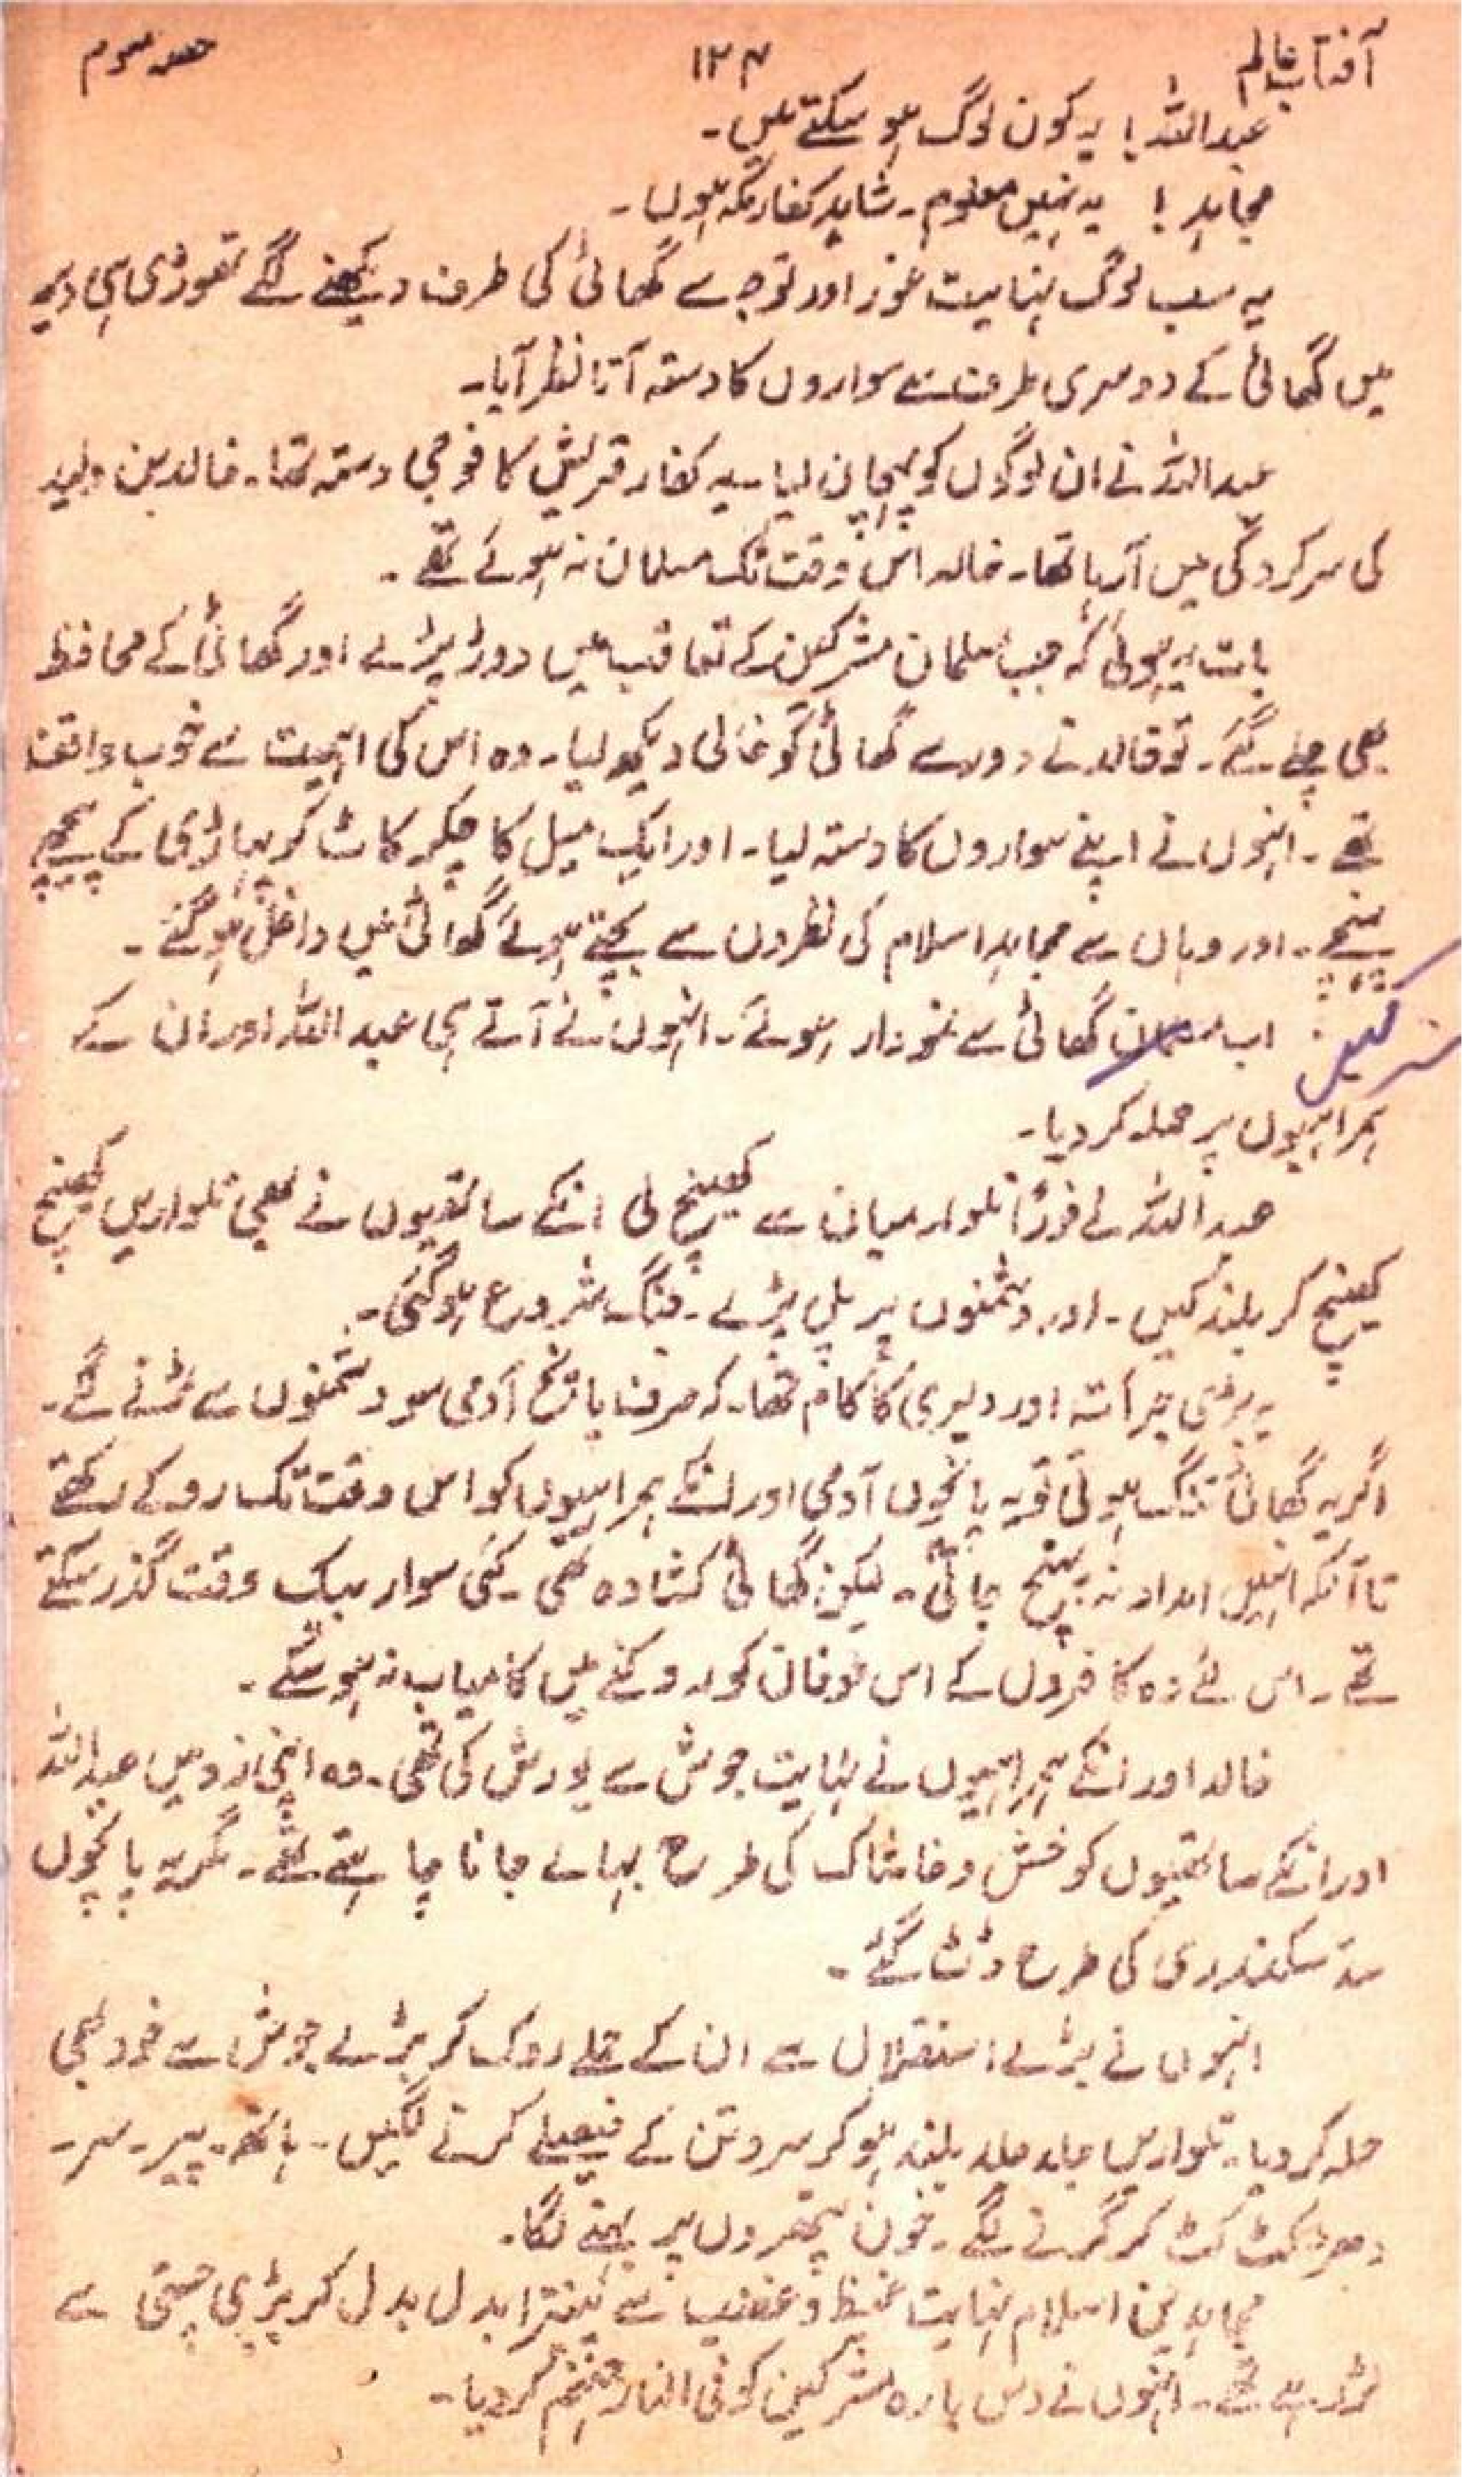 آفتاب عالم ۱۲۴ حصہ سوم
عبداللہ! یہ کون لوگ ہو سکتے ہیں۔
مجاہد! یہ نہیں معلوم۔ شاید کفار مکہ ہوں۔
یہ سب لوگ نہایت غور اور توجہ سے گھاٹی کی طرف دیکھنے لگے تھوڑی ہی دیر
میں گھاٹی کے دوسری طرف سے سواروں کا دستہ آتا نظر آیا۔
عبداللہ نے ان لوگوں کو پہچان لیا۔ یہ کفار قریش کا فوجی دستہ تھا۔ خالد بن ولید
کی سرکردگی میں آرہا تھا۔ خالد اس وقت تک مسلمان نہ ہوئے تھے۔
بات یہ ہوئی کہ جب مسلمان مشرکین کے تعاقب میں دوڑ پڑے اور گھاٹی کے محافظ
بھی چلے گئے۔ تو خالد نے دور سے گھاٹی کو خالی دیکھ لیا۔ وہ اس کی اہمیت سے خوب واقف
تھے۔ انہوں نے اپنے سواروں کا دستہ لیا۔ اور ایک میل کا چکر کاٹ کر پہاڑی کے پیچھے
پہنچے۔ اور وہاں سے مجاہد اسلام کی نظروں سے بچتے ہوئے گھاٹی میں داخل ہو گئے۔
مشرکین اب مسلمان گھاٹی سے نمودار ہوئے۔ انہوں نے آتے ہی عبداللہ اور ان کے
ہمراہیوں پر حملہ کر دیا۔
عبداللہ نے فوراً تلوار میان سے کھینچ لی انکے ساتھیوں نے بھی تلواریں کھینچ
کھینچ کر بلند کیں۔ اور دشمنوں پر پل پڑے۔ جنگ شروع ہو گئی۔
یہ بڑی جرأت اور دلیری کا کام تھا۔ کہ صرف پانچ آدمی سو دشمنوں سے لڑنے لگے۔
اگر یہ گھاٹی تنگ ہوتی تو یہ پانچوں آدمی اور انکے ہمراہیوں کو اس وقت تک روکے رکھتے
تا آنکہ انہیں امداد نہ پہنچ جاتی۔ لیکن گھاٹی کشادہ تھی۔ کئی سوار بیک وقت گذر سکتے
تھے۔ اس لئے وہ کافروں کے اس طوفان کو روکنے میں کامیاب نہ ہو سکے۔
خالد اور انکے ہمراہیوں نے نہایت جوش سے یورش کی تھی۔ وہ اپنی رو میں عبداللہ
اور انکے ساتھیوں کو خش و خاشاک کی طرح بہا لے جانا چاہتے تھے۔ مگر یہ پانچوں
سد سکندری کی طرح ڈٹ گئے۔
انہوں نے بڑے استقلال سے ان کے حملے روک کر بڑے جوش سے خود بھی
حملہ کر دیا۔ تلواریں جلد جلد بلند ہو کر سر و تن کے فیصلے کرنے لگیں۔ ہاتھ۔ پیر۔ سر۔
دھڑ کٹ کٹ کر گرنے لگے۔ خون پتھروں پر بہنے لگا۔
مجاہدین اسلام نہایت غیظ و غضب سے پینترا بدل بدل کر بڑی چستی سے
لڑ رہے تھے۔ انہوں نے دس بارہ مشرکین کو فی النار کر دیا۔